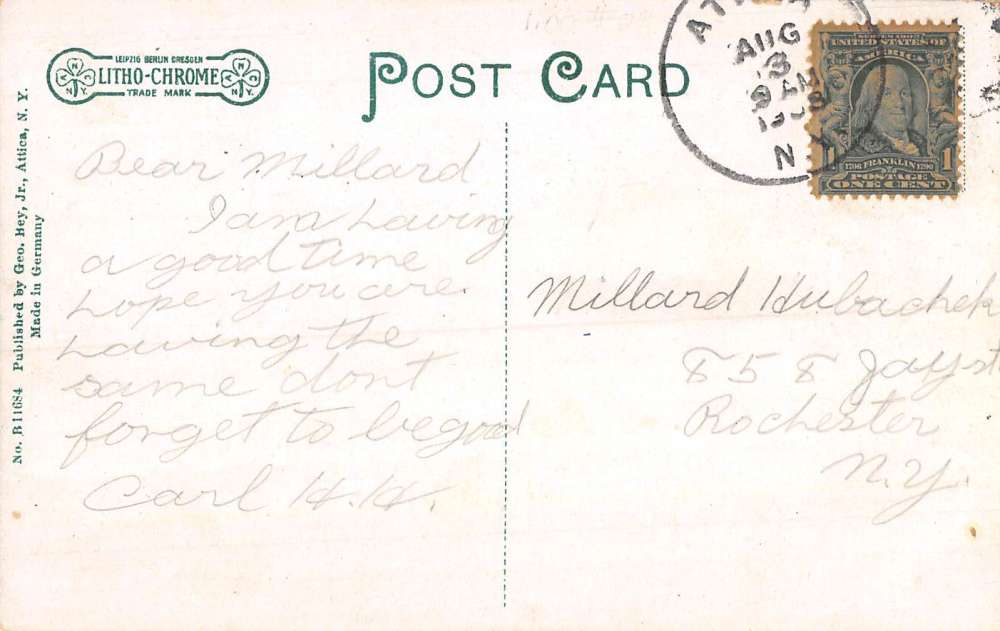 LEIPZIG BERLIN DRESDEN
LITHO-CHROME
TRADE MARK
N Y
N.Y.
POST CARD
AUG
3
9 AM
1908
N
SERIES 1902
UNITED STATES OF
AMERICA
1 1
1706 FRANKLIN 1790
POSTAGE
ONE CENT
No. B 11684 Published by Geo. Hey, Jr., Attica, N. Y.
Made in Germany
Dear Millard
I am having
a good time
hope you are.
having the
same dont
forget to be good
Carl H.H.
Millard Hubachek
858 Jay st
Rochester
N.Y.